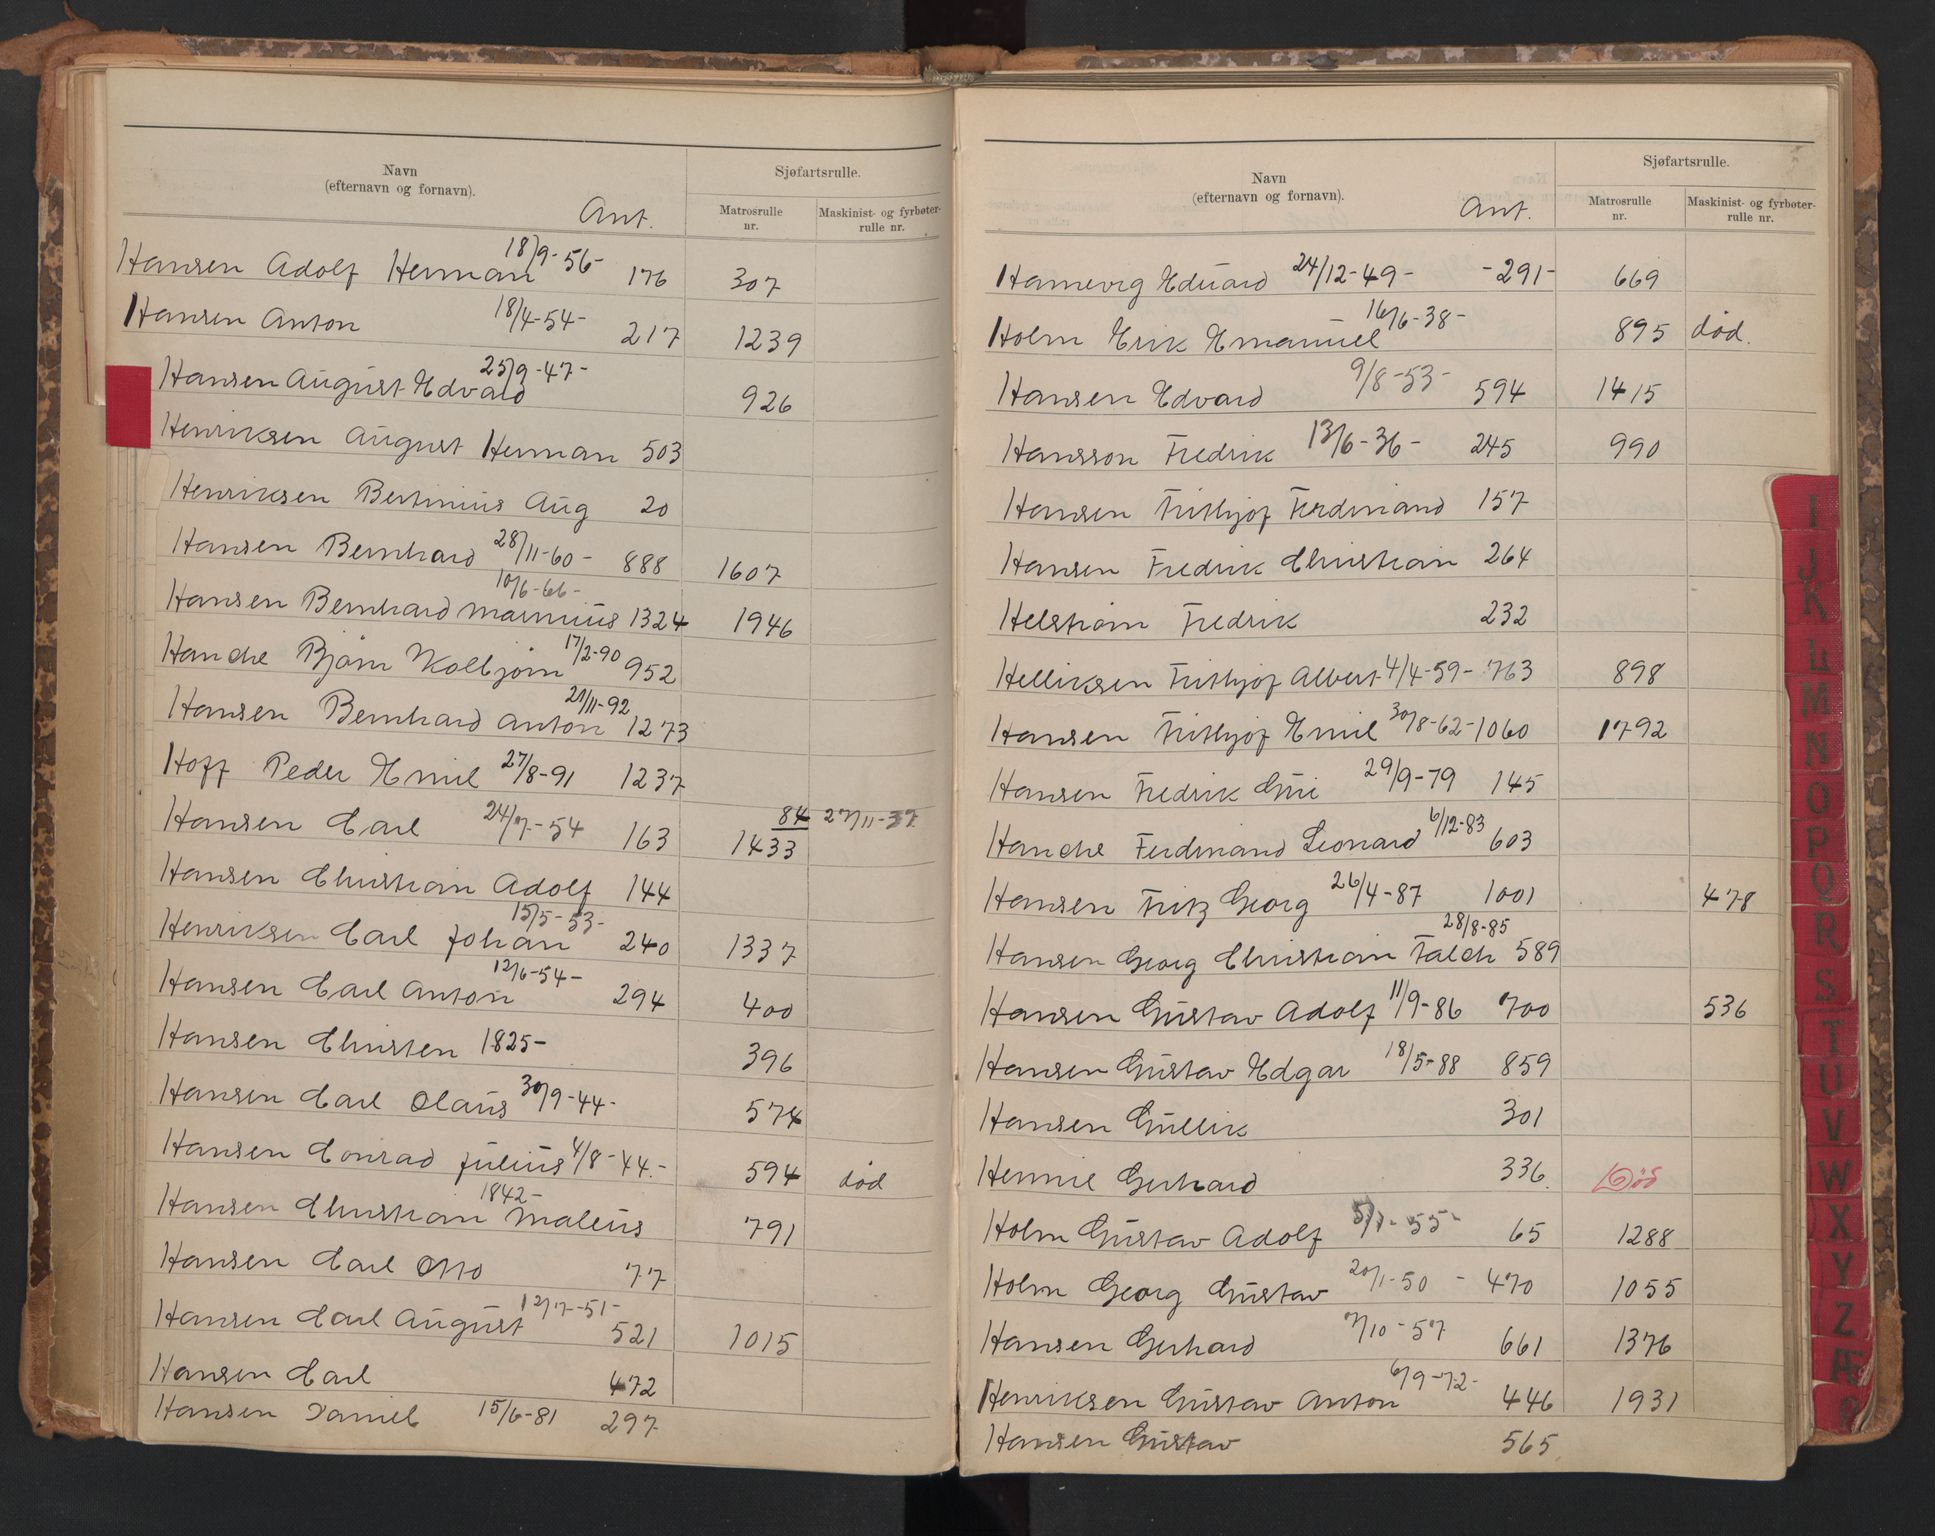 Navn
(efternavn og fornavn).
Ant.
Sjøfartsrulle.
Matrosrulle nr.
Maskinist- og fyrbøter-rulle nr.
Hansen Adolf Herman 18/9-56- 176 307
Hansen Anton 18/4-54- 217 1239
Hansen August Edvard 25/9-47- 926
Henriksen August Herman 503
Henriksen Bertinius Aug 20
Hansen Bernhard 28/11-60- 888 1607
Hansen Bernhard Marinius 10/6-66- 1324 1946
Hanche Bjørn Kolbjørn 17/2-90 952
Hansen Bernhard Anton 21/11-92 1273
Hoff Peder Emil 27/8-91 1237
Hansen Carl 24/7-54 163 84 1433 27/11-37
Hansen Christian Adolf 144
Henriksen Carl Johan 15/5-53- 240 1337
Hansen Carl Anton 12/6-54- 294 400
Hansen Christen 1825- 396
Hansen Carl Olaus 30/9-44- 574
Hansen Conrad Julius 4/8-44.- 594 død
Hansen Christian Maleus 1842- 791
Hansen Carl Otto 77
Hansen Carl August 12/7-51- 521 1015
Hansen Carl 472
Hansen Daniel 15/6-81 297
Navn
(efternavn og fornavn).
Ant.
Sjøfartsrulle.
Matrosrulle nr.
Maskinist- og fyrbøter-rulle nr.
Hamevig Eduard 24/12-49- -291- 669
Holm Erik Emanuel 16/6-38- 895 død.
Hansen Edvard 9/8-53- 594 1415
Hansson Fredrik 13/6-36- 245 990
Hansen Frithjof Ferdinand 157
Hansen Fredrik Christian 264
Helstrøm Fredrik 232
Helliksen Frithjof Albert 4/4-59- 763 898
Hansen Frithjof Emil 30/8-62- 1060 1792
Hansen Fredrik Gui 29/9-79 145
Hanche Ferdinand Leonard 6/12-83 603
Hansen Fritz Georg 26/4-87 1001 478
Hansen Georg Christian Falch 28/8-85 589
Hansen Gustav Adolf 11/9-86 700 536
Hansen Gustav Edgar 18/5-88 859
Hansen Gullik 301
Hennie Gerhard 336. Død
Holm Gustav Adolf 5/7-55- 65 1288
Holm Georg Gustav 20/1-50 - 470 1055
Hansen Gerhard 7/10-57 661 1376
Henriksen Gustav Anton 6/9-72- 446 1931
Hansen Gustav 565
I
J
K
L
M
N
O
P
Q
R
S
T
U
V
W
X
Y
Z
Æ
Ø